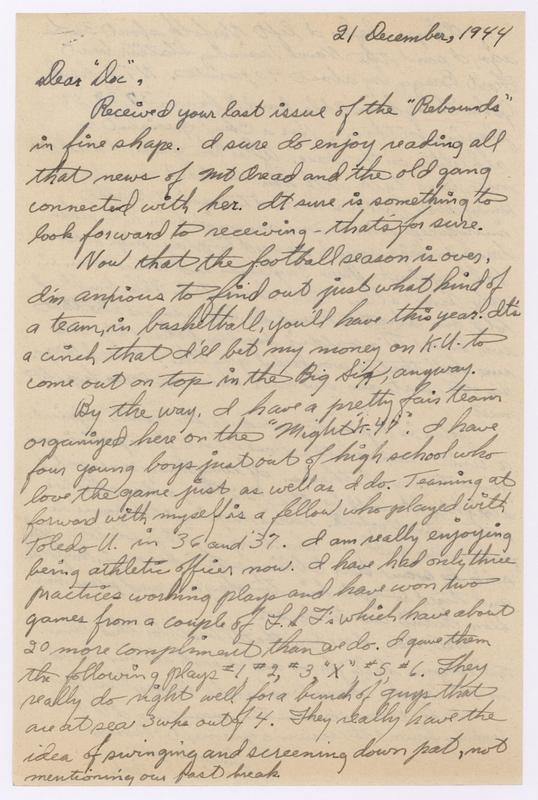 21 December, 1944
Dear "Doc",
Received your last issue of the "Rebounds"
in fine shape. I sure do enjoy reading all
that news of Mt Oread and the old gang
connected with her. It sure is something to
look forward to receiving - that's for sure.
Now that the football season is over,
I'm anxious to find out just what kind of
a team, in basketball, you'll have this year. It's
a cinch that I'll bet my money on K.U. to
come out on top in the Big Six, anyway.
By the way, I have a pretty fair team
organized here on the "Might K-47". I have
four young boys just out of high school who
love the game just as well as I do. Teaming at
forward with myself is a fellow who played with
Toledo U. in 36 and '37. I am really enjoying
being athletic officer now. I have had only three
practices working plays and have won two
games from a couple of L.S.T's which have about
20 more compliment than we do. I gave them
the following plays #1, #2, #3, "X" #5, #6. They
really do right well for a bunch of guys that
are at sea 3 wks out of 4. They really have the
idea of swinging and screening down pat, not
mentioning our fast break.